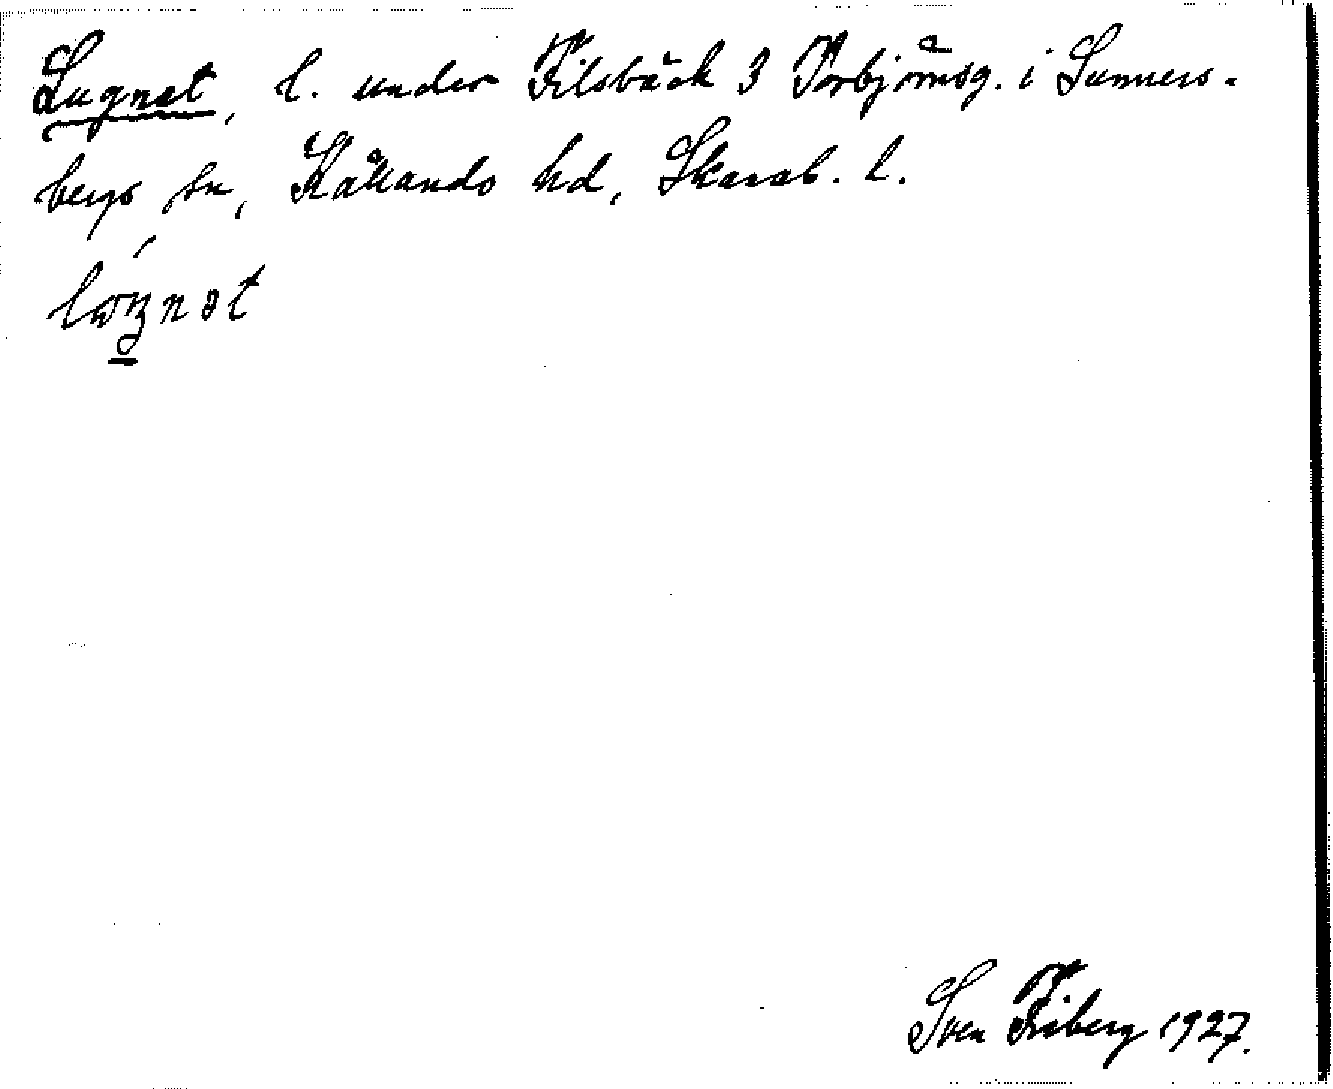 Lugnet, l. under Filsbäck 3 Torbjörnsg. i Sunners-
bergs sn, Kållands hd, Skarab. l.
Sven Friberg 1927.